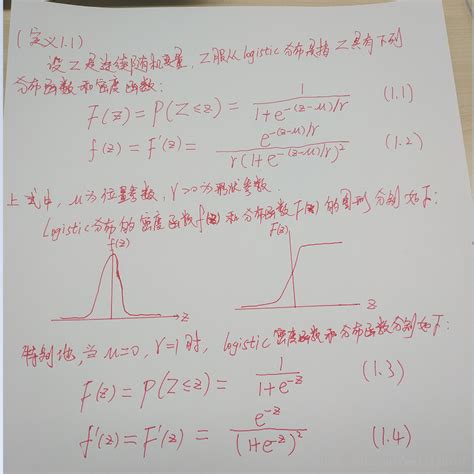 (定义1.1)
设Z是连续随机变量，Z服从logistic分布是指Z具有下列
分布函数和密度函数：
F(z) = P(Z≤z) = 1 / (1+e^{-(z-μ)/γ}) (1.1)
f(z) = F'(z) = e^{-(z-μ)/γ} / (γ(1+e^{-(z-μ)/γ})^2) (1.2)
上式中，μ为位置参数，γ>0为形状参数.
Logistic分布的密度函数f(z)和分布函数F(z)的图形分别如下：
f(z) F(z)
z z
特别地，当μ=0，γ=1时，logistic密度函数和分布函数分别如下：
F(z) = P(Z≤z) = 1 / (1+e^{-z}) (1.3)
f'(z) = F'(z) = e^{-z} / (1+e^{-z})^2 (1.4)